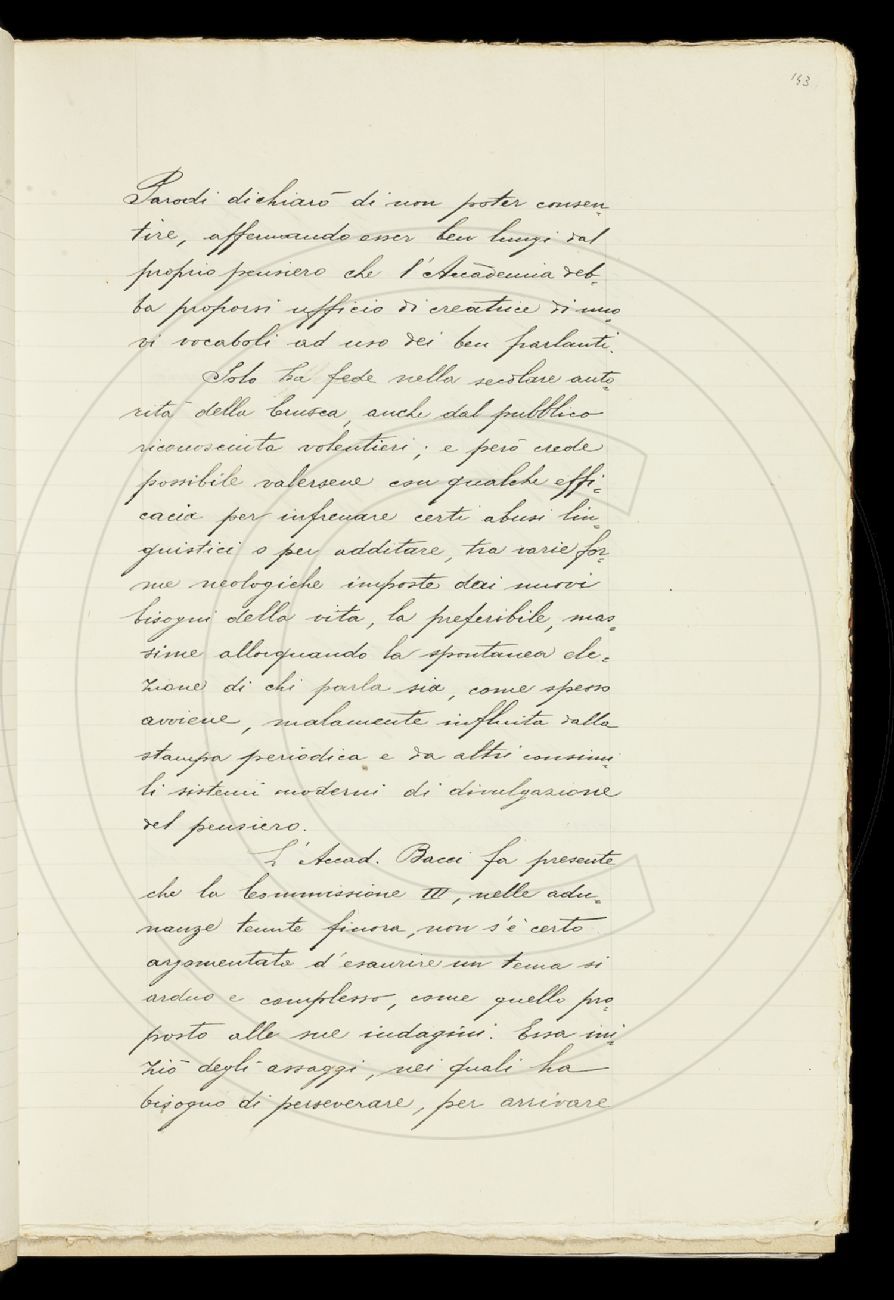 143
Parodi dichiarò di non poter consen-
tire, affermando esser ben lungi dal
proprio pensiero che l'Accademia deb-
ba proporsi ufficio di creatrice di nuo-
vi vocaboli ad uso dei ben parlanti.
Solo ha fede nella secolare auto-
rità della Crusca, anche dal pubblico
riconosciuta volentieri; e però crede
possibile valersene con qualche effi-
cacia per infrenare certi abusi lin-
guistici o per additare, tra varie for-
me neologiche imposte dai nuovi
bisogni della vita, la preferibile, mas-
sime allorquando la spontanea ele-
zione di chi parla sia, come spesso
avviene, malamente influita dalla
stampa periodica e da altri consimi-
li sistemi moderni di divulgazione
del pensiero.
L'Accad. Bacci fa presente
che la Commissione III, nelle adu-
nanze tenute finora, non s'è certo
argomentata d'esaurire un tema sì
arduo e complesso, come quello pro-
posto alle sue indagini. Essa ini-
ziò degli assaggi, nei quali ha
bisogno di perseverare, per arrivare